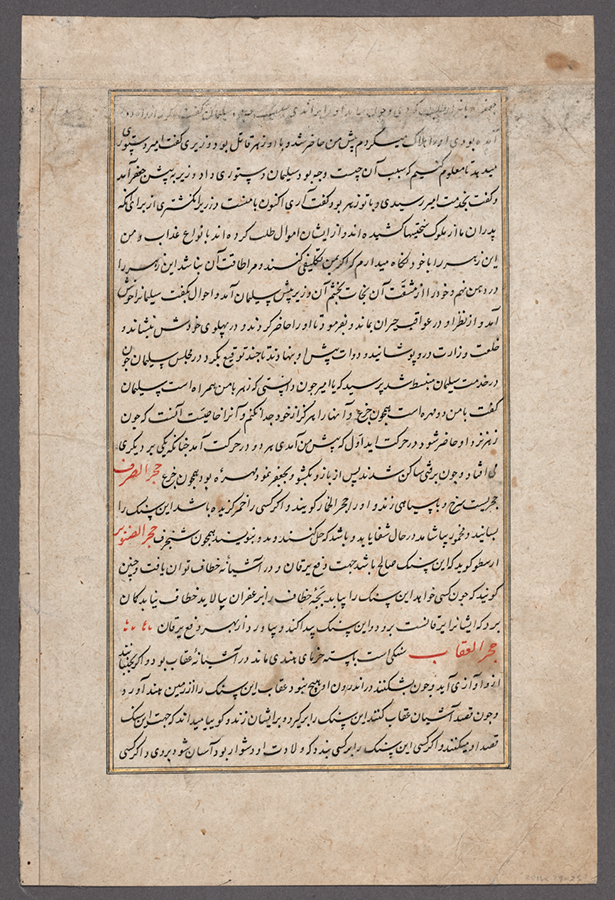 آمده بودی او را هلاک میکردم پیش من حاضر شد و با او زهر قاتل بود وزیری گفت امیر دستوری
میدهد تا معلوم کنیم که سبب آن چیست و چه بود سلیمان دستوری داد وزیر به پیش جعفر آمد
و گفت بخدمت امیر رسیدی و با تو زهر بود گفت آری اکنون با منست در زیر انگشتری از برای آنکه
پدران ما از ملوک سختیها کشیده اند و از ایشان اموال طلب کرده اند بانواع عذاب و من
این زهر را با خود نگاه میدارم که اگر بمن تکلیفی کنند و مرا طاقت آن نباشد این زهر را
در دهن نهم و خود را از مشقت آن نجات بخشم آن وزیر پیش سلیمان آمد و احوال گفت سلیمانرا خوش
آمد و از نظر او در عواقب حیران بماند و بفرمود تا او را حاضر کردند و در پهلوی خودش بنشاند و
خلعت وزارت درو پوشانید و دوات پیش او نهادند تا چند توقیع بکرد در مجلس سلیمان چون
در خدمت سلیمان منبسط شد پرسید که یا امیر چون دانستی که زهر با من همراه است سلیمان
گفت با من دو مهره است همچون جزع و آنها را هرگز از خود جدا نکنم و آنرا خاصیت آنست که چون
زهر نزد او حاضر شود در حرکت آید اول که پیش من آمدی هر دو در حرکت آمد چنانکه یکی بر دیگری
می افتاد و چون برفتی ساکن شدند پس از بازو بگشود و بجعفر نمود دو مهره بود همچون جزع حجر الصرف
حجریست سرخ و با سیاهی زند و او را حجر الخمار گویند و اگر کسی را خمر گزیده باشد این سنک را
بسایند و مخمور بیاشامد در حال شفا یابد و باشد که حل کنند و بدو بنویسند همچون شنجرف حجر الصنوبر
ارسطو گوید که این سنک صالح باشد جهت دفع یرقان و در آشیانه خطاف توان یافت و چنین
گویند که چون کسی خواهد این سنک را بیابد بچه خطاف را بزعفران بیالاید خطاف بیاید گمان
برد که ایشانرا یرقانست برود و این سنک پیدا کند و بیاورد از بهر دفع یرقان
حجر العقاب سنگی است بهسته خرمای هندی ماند در آشیانه عقاب بود و اگر بجنبانند
ازو آوازی آید و چون بشکنند در اندرون او هیچ نبود عقاب این سنک را از زمین هند آورد
و چون قصد آشیان عقاب کنند این سنک را برگیرد و برایشان زند و گوییا میداند که جهت این سنک
قصد او میکنند و اگر کسی این سنک را بر کسی بندد که ولادت او دشوار بود آسان شود بروی و اگر کسی